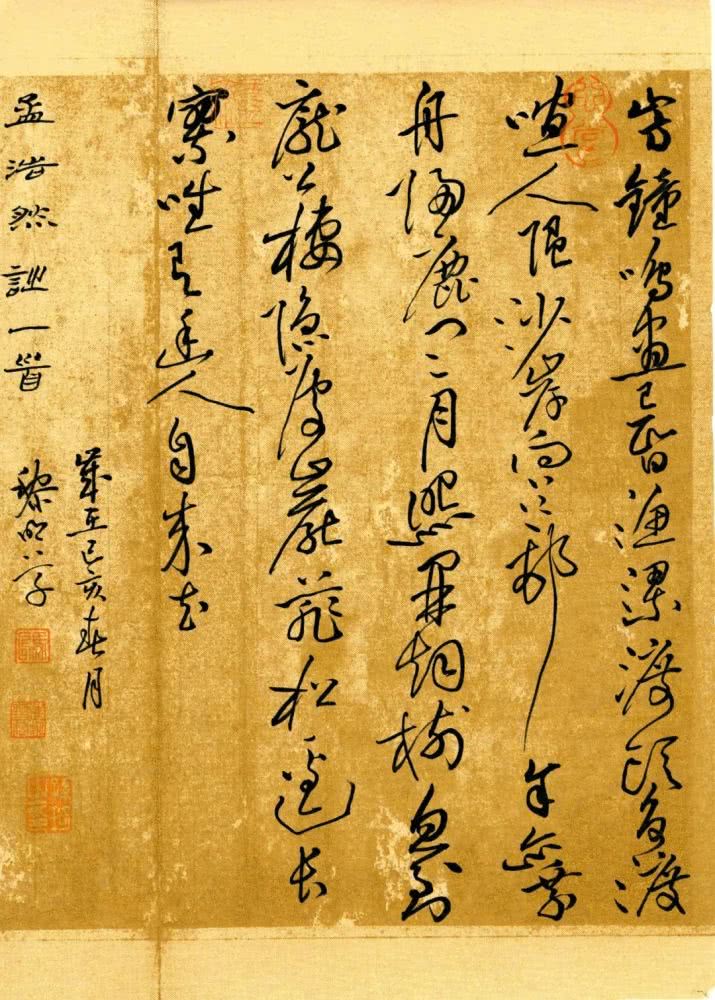 山寺鐘鳴晝已昏漁梁渡頭爭渡
喧人隨沙岸向江村余亦乘
舟歸鹿門〻月照開烟樹忽到
龐公棲隱處巖扉松逕長
寥唯有幽人自来去
孟浩然詩一首
歲在己亥春月
黎明